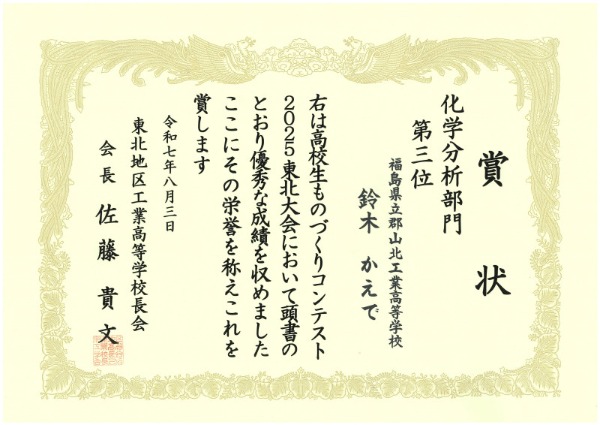 賞状
化学分析部門
第三位
福島県立郡山北工業高等学校
鈴木 かえで
右は高校生ものづくりコンテスト
2025東北大会において頭書の
とおり優秀な成績を収めました
ここにその栄誉を称えこれを
賞します
令和七年八月三日
東北地区工業高等学校長会
会長 佐藤貴文